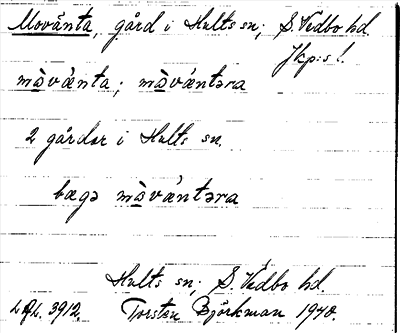 Movänta, gård i Hults sn; S. Vedbo hd.
Jkp:s l.
mòvǽnta; mòvǽntəra
2 gårdar i Hults sn.
bægə mòvǽntəra
Hults sn; S. Vedbo hd.
3912. Torsten Björkman 1940.